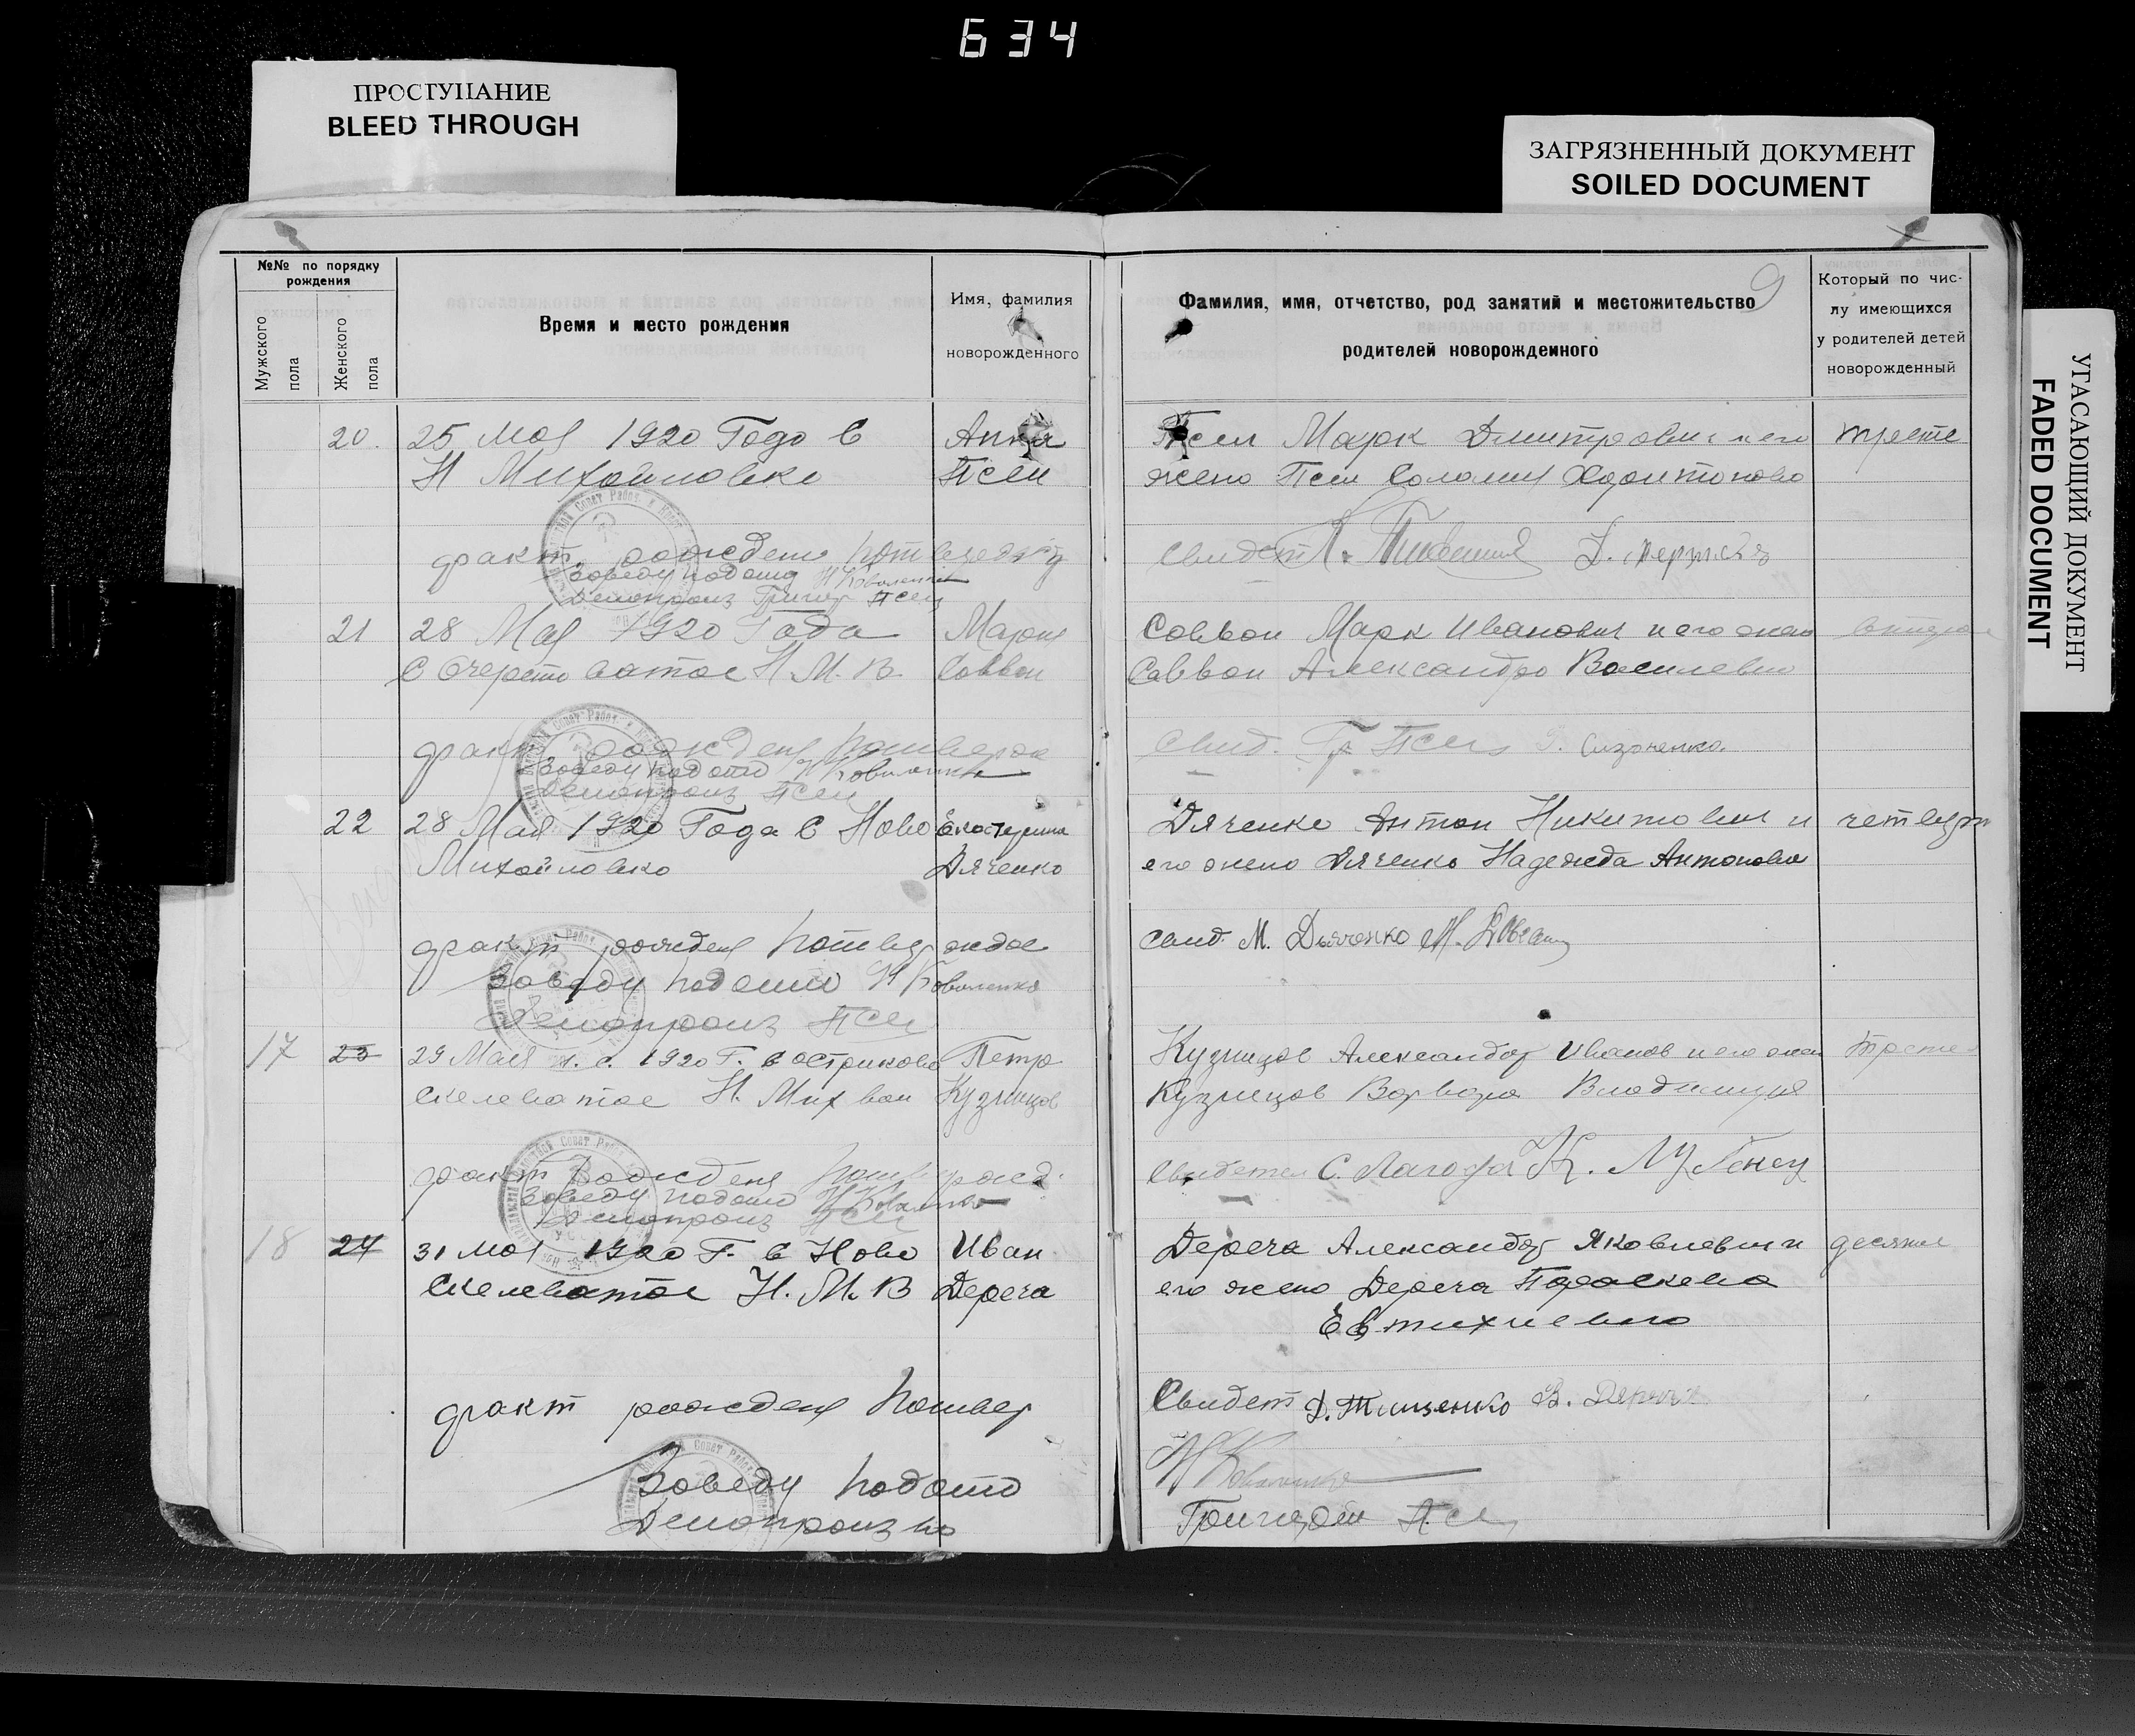 634
ПРОСТУПАНИЕ
BLEED THROUGH
ЗАГРЯЗНЕННЫЙ ДОКУМЕНТ
SOILED DOCUMENT
УГАСАЮЩИЙ ДОКУМЕНТ
FADED DOCUMENT
№№ по порядку
рождения
Мужского
пола
Женского
пола
Время и место рождения
Имя, фамилия
новорожденного
9
Фамилия, имя, отчетство, род занятий и местожительство
родителей новорожденного
Который по чис-
лу имеющихся
у родителей детей
новорожденный
20. 25 мая 1920 Года в Анна Псел Марк Дмитрович и его третe
Н Михайловке Псел жена Псел Соломия Харитоново
факт рождения Свидет
Заведу подотд Н Коваленко
Делопроиз Григор Псел
21 28 Мая 1920 Года Мария Саввон Марк Иванович и его жена
С Очеретоватое Н. М. В. Саввон Саввон Александра Василевно
факт рожден Свид. Гр Псел Сизоненко.
Заведу подотд Н Коваленко
Делопроиз Псел
22 28 Мая 1920 Года в Ново Екатерина Дяченко Антон Никитович и четверт
Михайловка Дяченко его жена Дяченко Надежда Антонова
факт рожден потвержда свид. М. Дьяченко
Заведу подотд Н Коваленко
Делопроиз Псел
17 23 29 Мая н. с. 1920 Г. в Остриково Петр Кузнецов Александр Иванов и его жена Трете
Скелеватое Н. Мих вол Кузнецов Кузнецов Варвара Владимиря
факт рожден Свидетел С.
Заведу подотд Н Коваленко
Делопроиз Псел
18 24 31 мая 1920 Г. в Ново Иван Дереча Александр Яковлевич и десятое
Скелеватое Н. М. В Дереча его жена Дереча Параскева
Евтихиевно
факт рожден потвер Свидет Д. Тищенко В.
Заведу подотд Н Коваленко
Делопроизво Григорий Псел